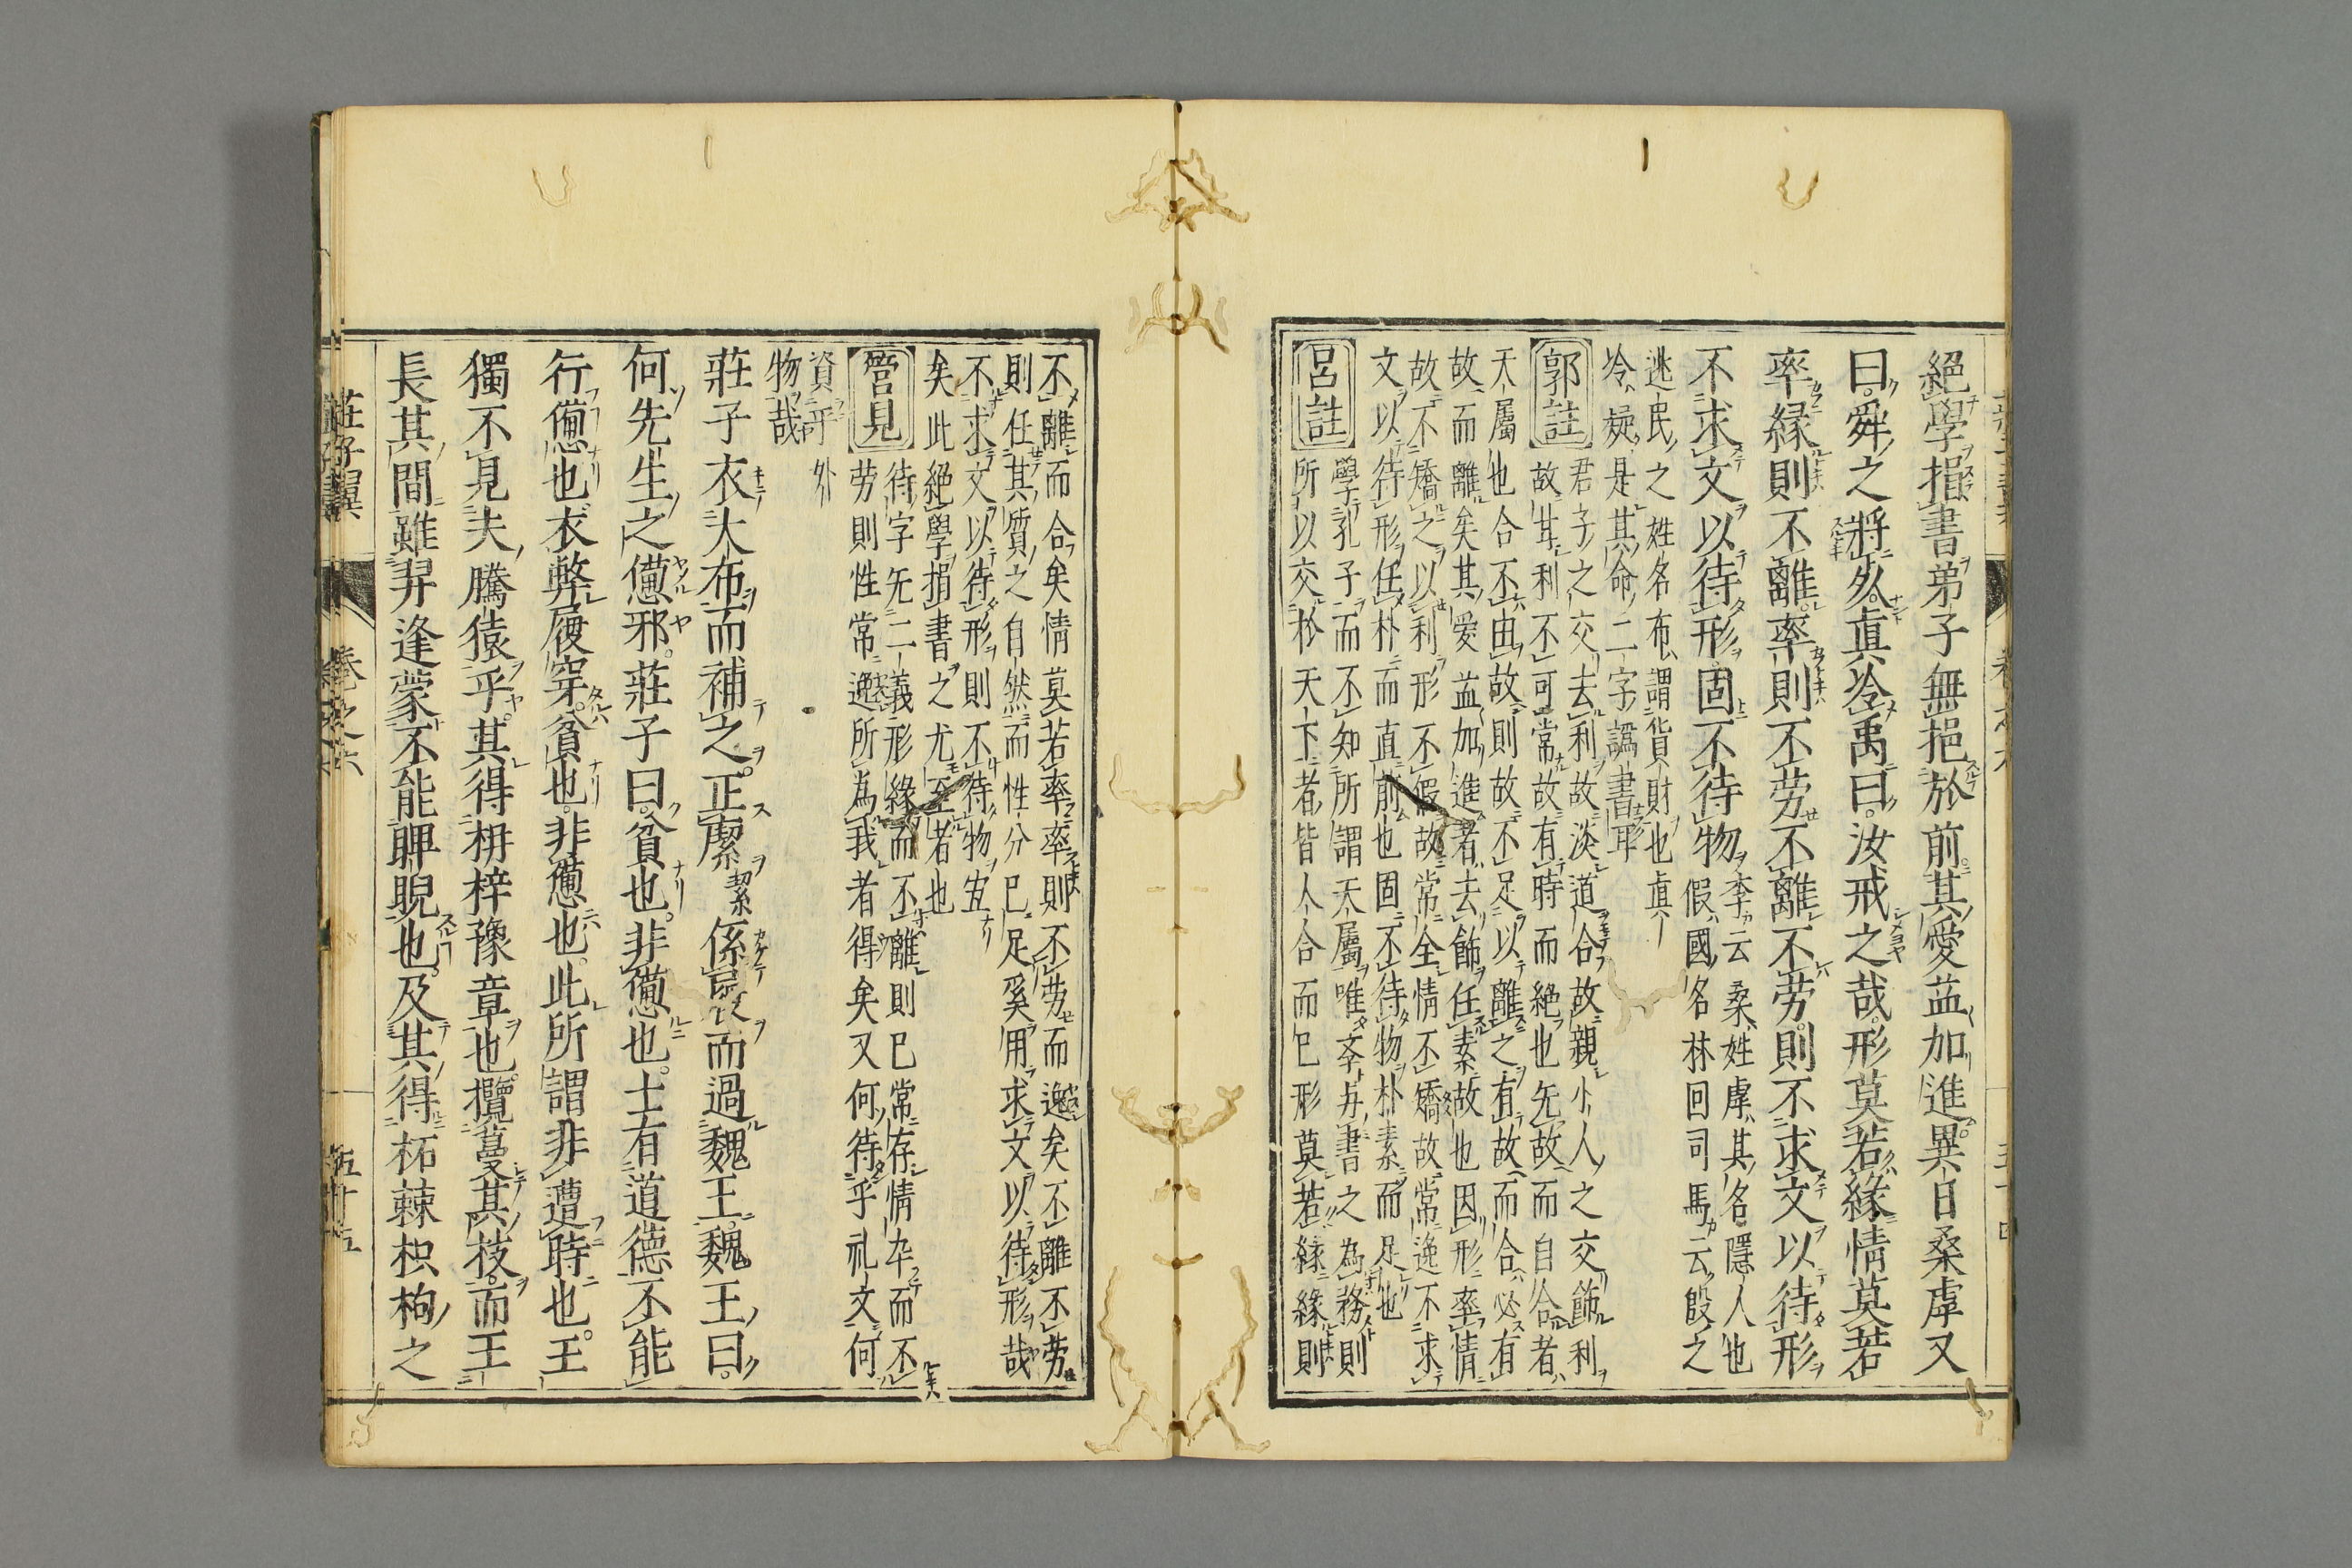 絕學捐書弟子無挹於前其愛益加進異日桑虖又
曰舜之將死真泠禹曰汝戒之哉形莫若緣情莫若
率緣則不離率則不勞不離不勞則不求文以待形
不求文以待形固不待物李云桑姓虖其名隱人也
假國名林回司馬云殷之
逃民之姓名布謂貨財也真
泠疑是其命二字譌書耳
郭註君子之交去利故淡道合故親小人之交飾利
故甘利不可常故有時而絕也无故而自合者
天屬也合不由故則故不足以離之有故而合必有
故而離矣其愛益加進者去飾任素故也因形率情
故不矯之以利形不假故常全情不矯故常逸不求
文以待形任朴而直前也固不待物朴素而足也
學孔子而不知所謂天屬唯文與書之為務則
呂註所以交於天下者皆人合而已形莫若緣緣則
不離而合矣情莫若率率則不勞而逸矣不離不勞
則任其質之自然而性分已足奚用求文以待形哉
不求文以待形則不待物宜
矣此絕學捐書之尤至者也
管見待字无二義形緣而不離則已常存情卒而不
勞則性常逸所為我者得矣又何待乎礼文何
資乎外
物哉
莊子衣大布而補之正緳絜係履而過魏王魏王曰
何先生之憊邪莊子曰貧也非憊也士有道德不能
行憊也衣弊履穿貧也非憊也此所謂非遭時也王
獨不見夫騰猿乎其得枏梓豫章也攬蔓其枝而王
長其間雖羿逢蒙不能眲睨也及其得柘棘枳枸之
莊子翼 卷之六 五十五